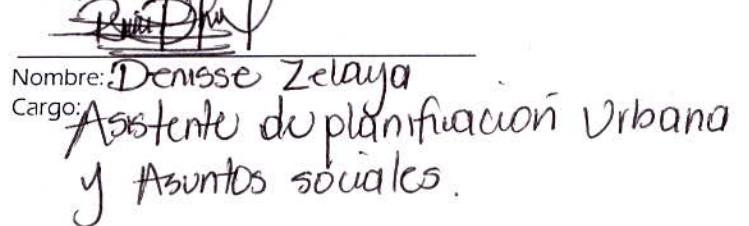 Nombre: Denisse Zelaya
Cargo: Asistente de planificación Urbana
y Asuntos sociales.